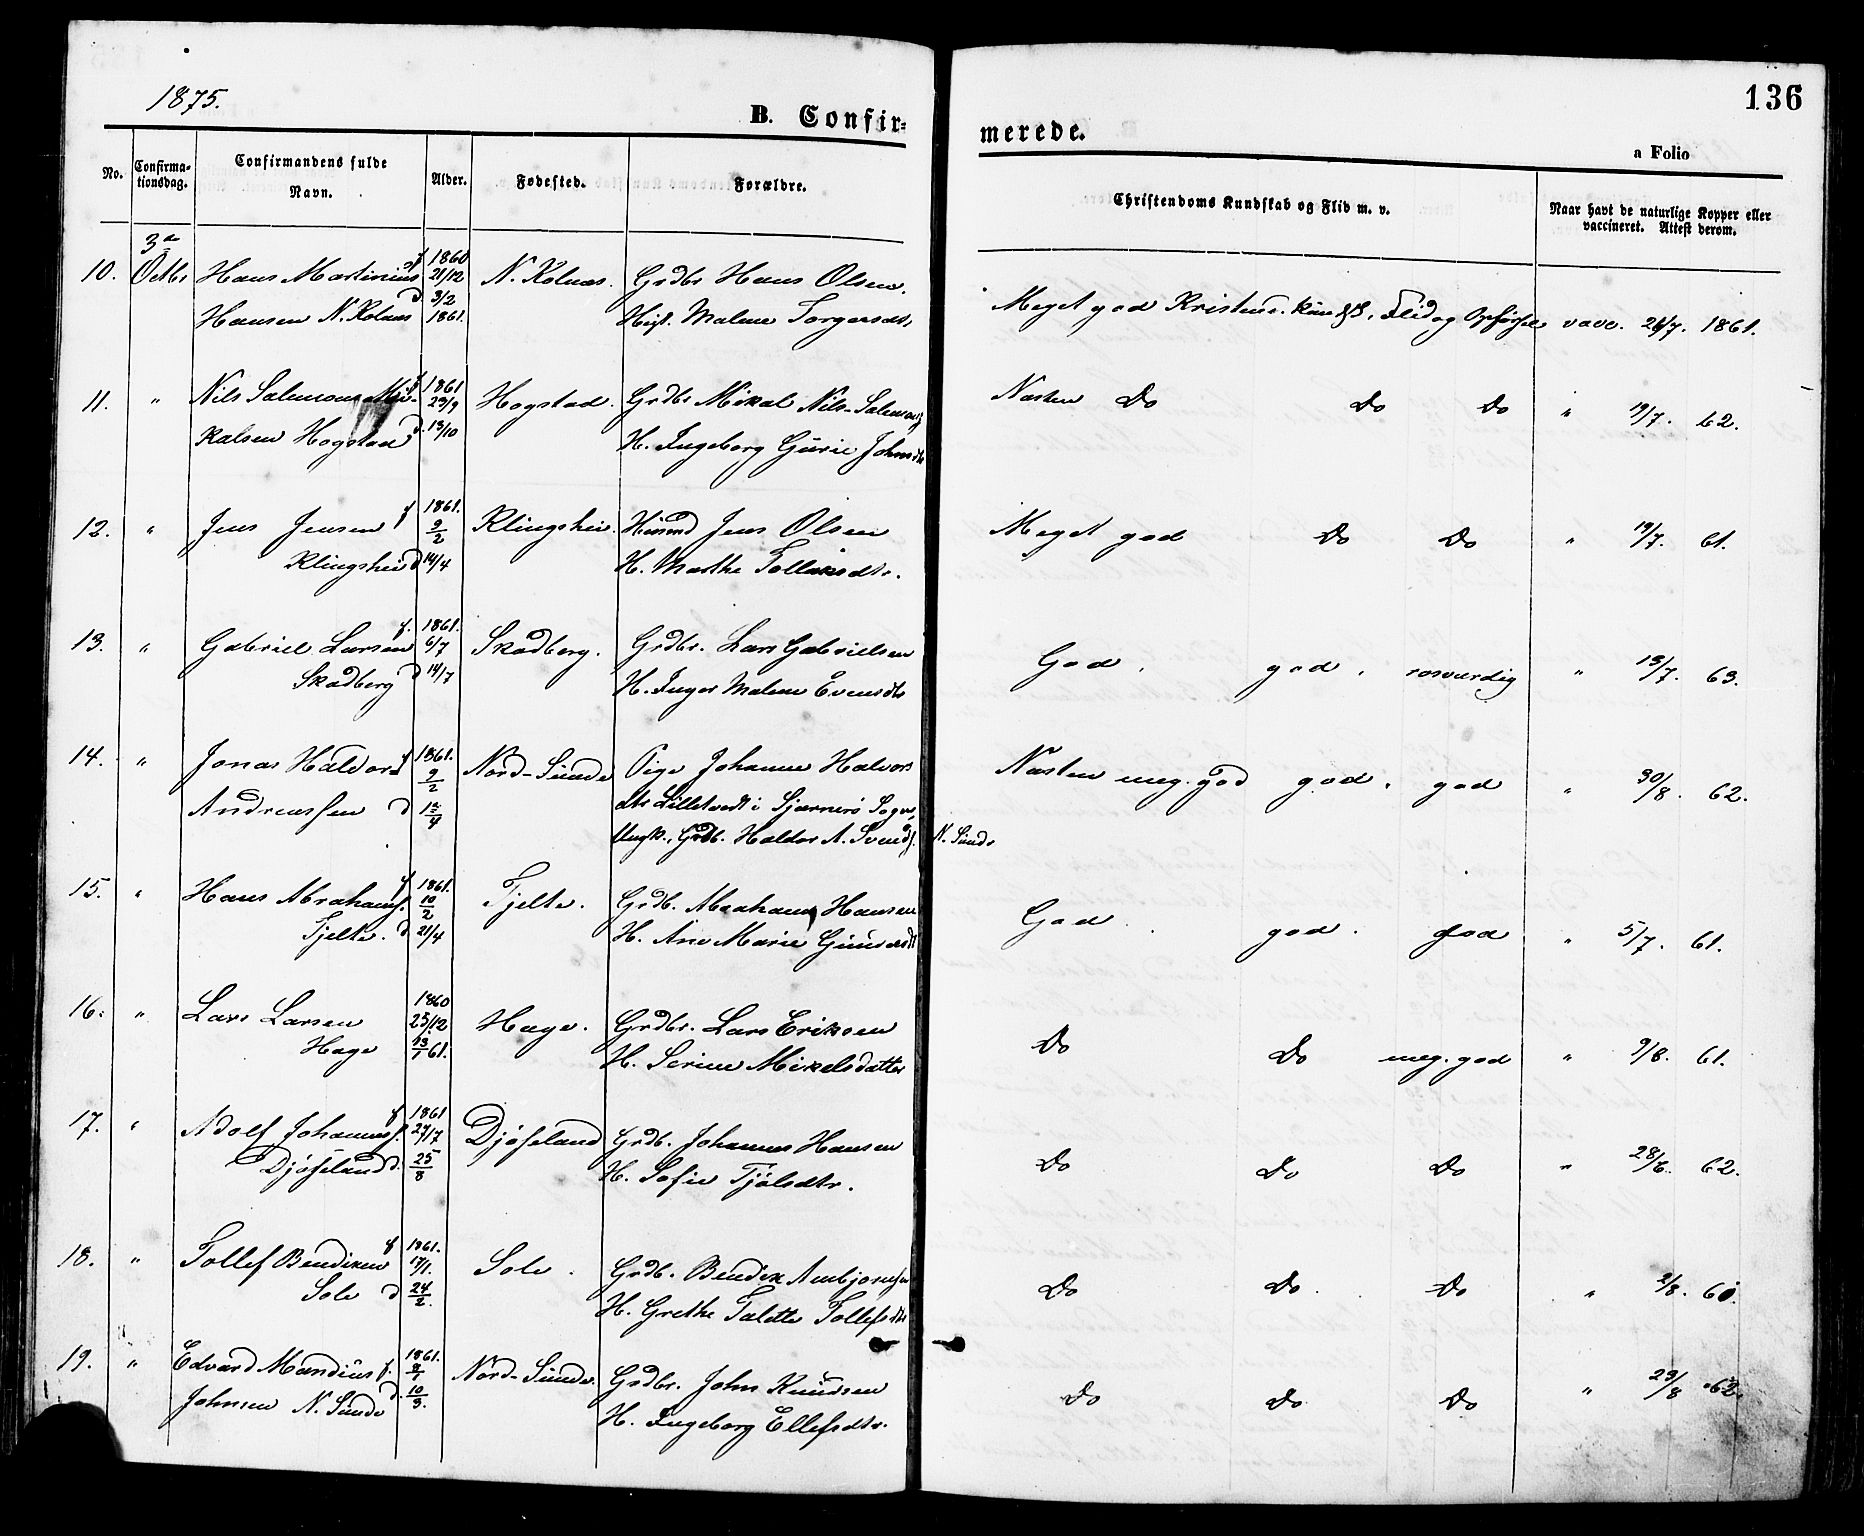 1875.
B. Confir-
merede.
136
a Folio
No.
Confirma-
tionsdag.
Confirmandens fulde
Navn.
Alder.
Fødested.
Forældre.
Christendoms Kundskab og Flid m. v.
Naar havt de naturlige Kopper eller
vaccineret. Attest derom.
3
10. Octbr Hans Martinius f 1860 21/12 N. Kolnæs. Grdbr Hans Olsen.
Hansen N. Kolnæs d 3/2 1861. Hust. Malene Torgersdtr
Meget god Kristend. Kundsk. Flid og Opførsel vacc. 26/7. 1861.
11. " Nils Salemons Mi- f 1861 29/9 Hogstad. Grdbr Mikal Nils-Salemons
kalsen Hogstad d. 13/10 H. Ingeborg Gurie Johnsdtr
Næsten Do Do Do " 19/7. 62.
12. " Jens Jensen f 1861. 9/2 Klingshei. Husmd Jens Olsen
Klingshei d 14/4 H. Marthe Tolleivsdtr.
Meget god Do Do " 19/7. 61.
13. " Gabriel Larsen f. 1861. 6/7 Skadberg. Grdbr. Lars Gabrielsen
Skadberg d 14/7 H. Inger Malene Evensdtr
God. god. rosværdig " 13/7. 63.
14. " Jonas Haldor f 1861. 9/2 Nord-Sunde Pige Johanne Halvors
Andreassen d 15/4 dtr Lilletvedt i Sjærnerø Sogn,
Ungk., Grdb. Haldor A. Svends. N. Sunde
Næsten meg. god god. god " 30/8. 62.
15. " Hans Abrahams. f 1861. 10/2 Tjelte. Grdb. Abraham Hansen
Tjelte. d 21/4 H. Ane Marie Gunvorsdt
God. god. god " 5/7. 61.
16. " Lars Larsen 1860 25/12 Hage. Grdbr. Lars Eriksen
Hage 13/1 61. H. Serine Mikelsdatter
Do Do meg. god " 9/8. 61.
17. " Adolf Johanness. f 1861 27/7 Djøseland Grdb. Johannes Hansen
Djøseland d. 25/8 H. Sofie Tjølsdtr.
Do Do Do " 28/6. 62.
18. " Tollef Bendiksen f 1861. 17/1. Sole. Grdb. Bendix Anbjørnsen
Sole d 24/2. H. Grethe Talette Tollefsdtr
Do Do. Do " 2/8. 61.
19. " Edvard Mandius f. 1861. 8/1 Nord-Sunde. Grdbr. John Knudsen
Johnsen N. Sunde d. 10/3. H. Ingeborg Ellefsdtr.
Do Do Do " 29/8 62.